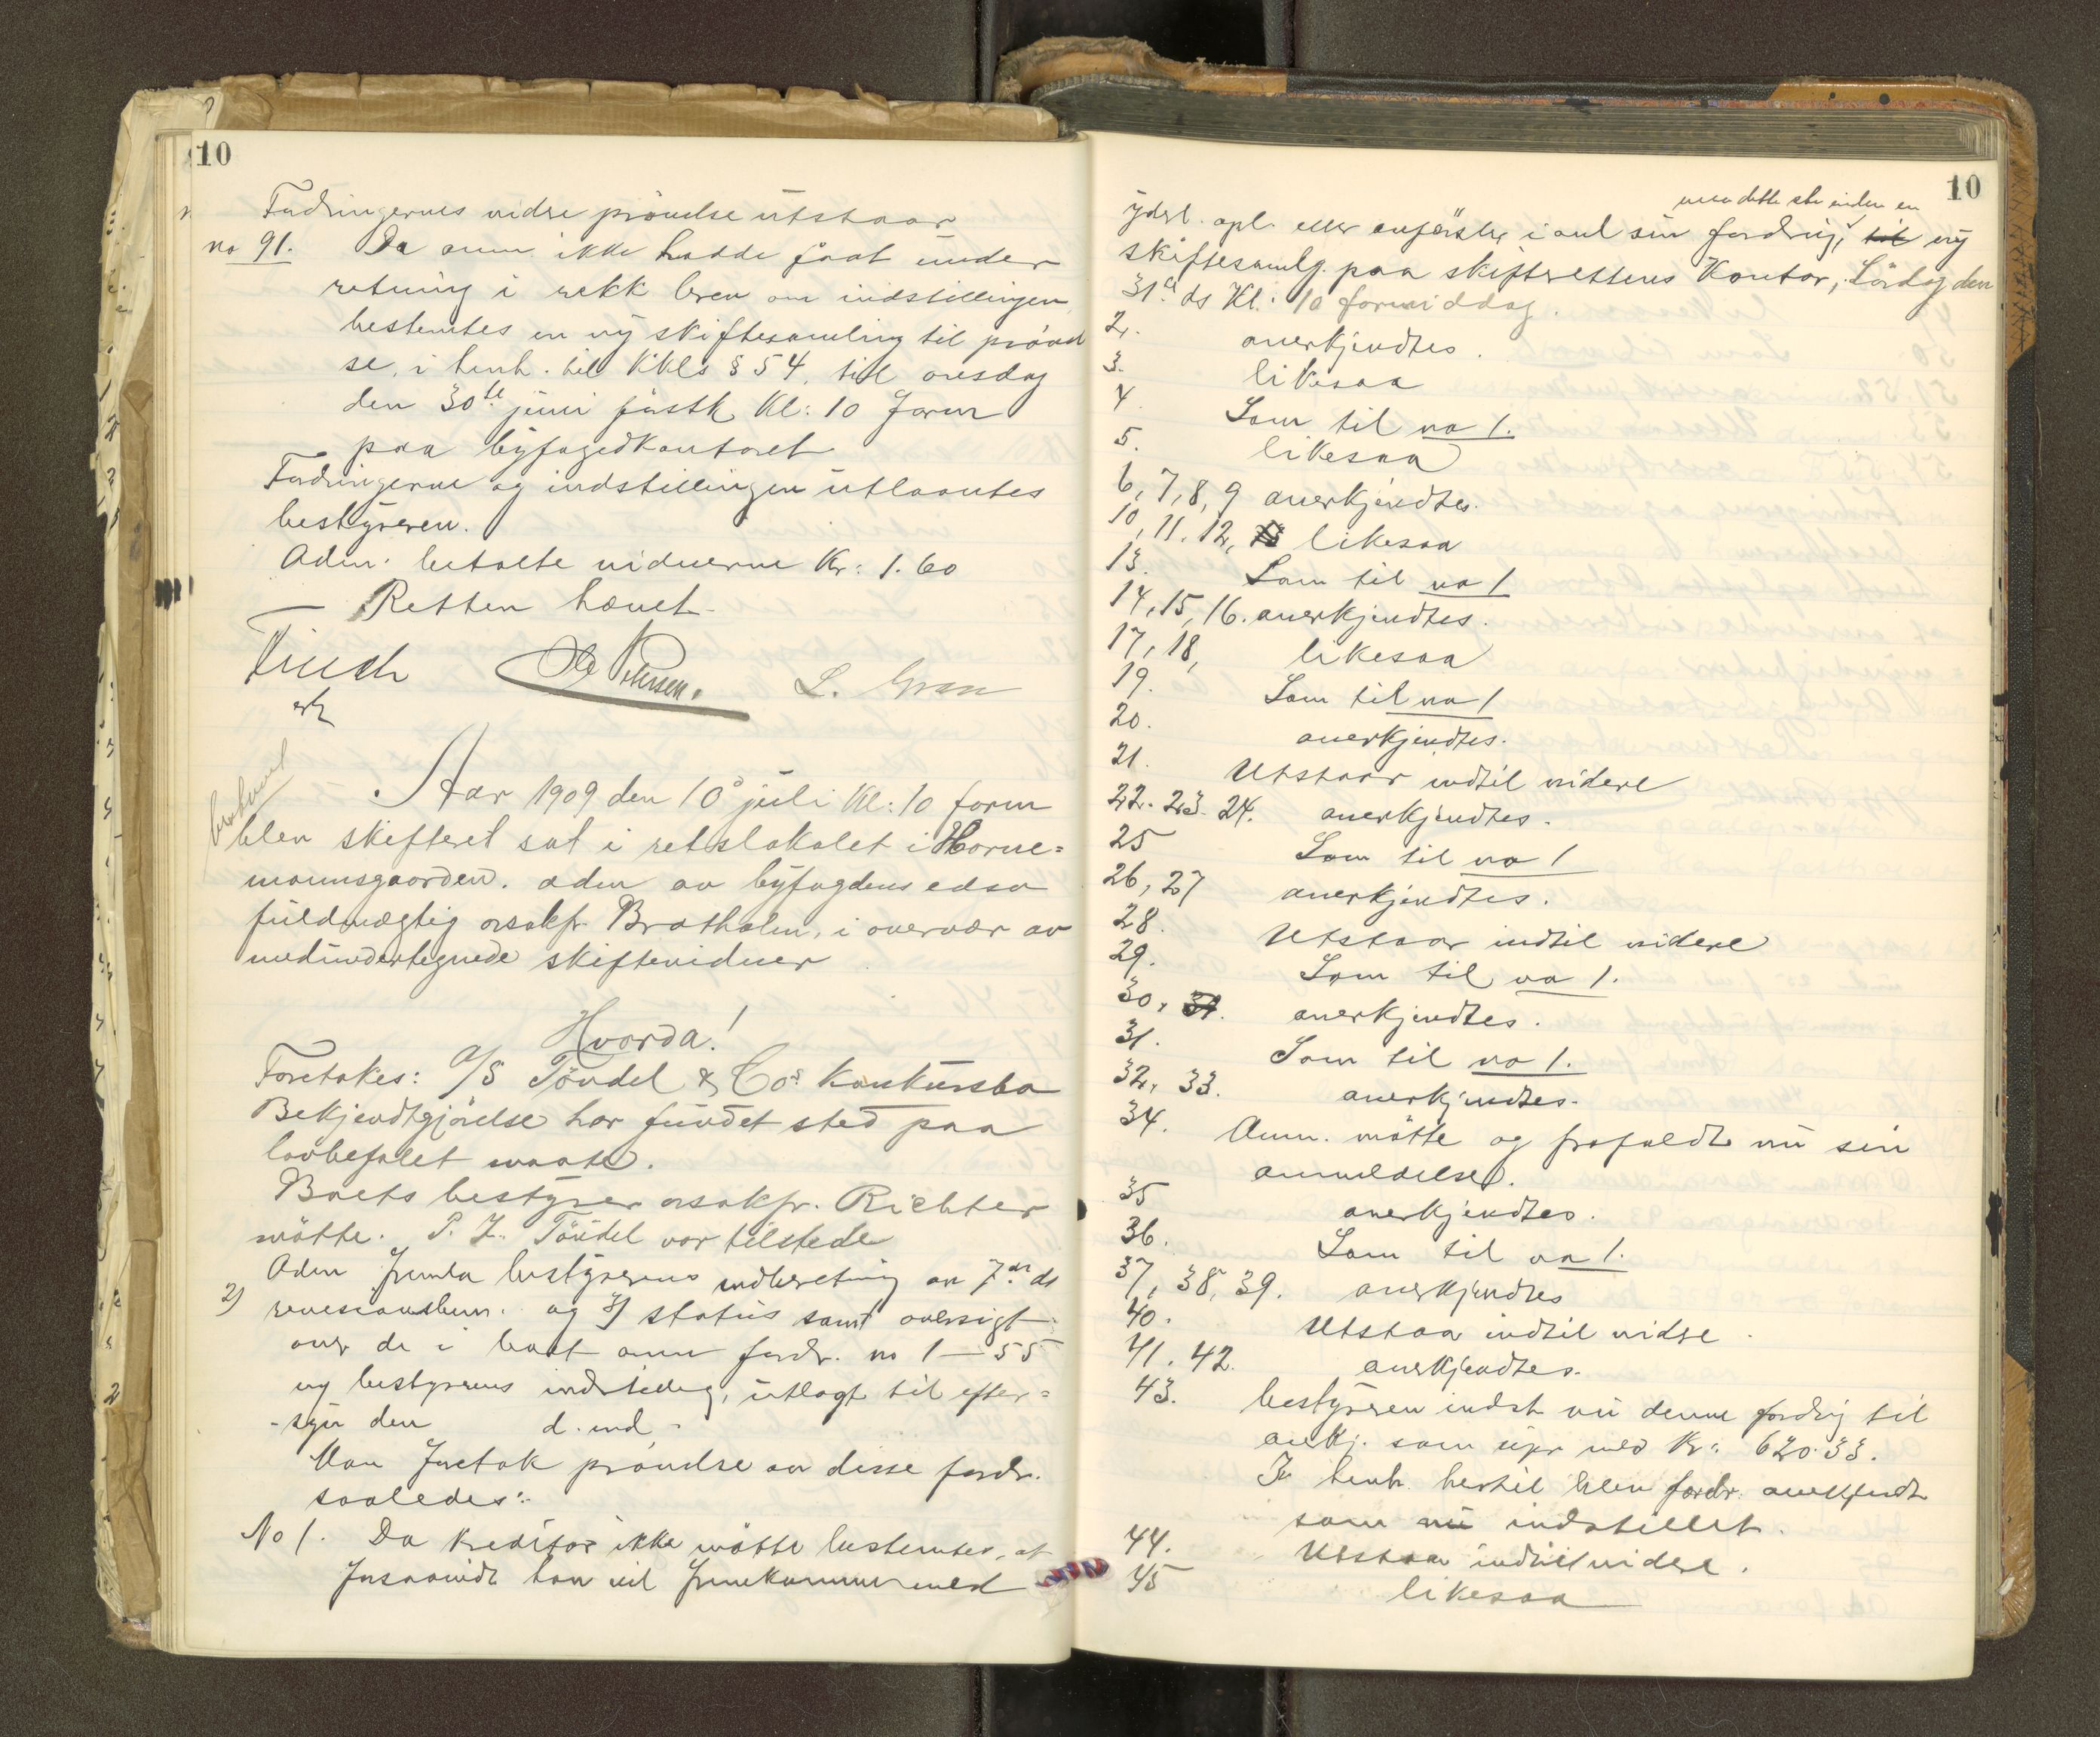 10
Fordringernes vidre prövelse utstaar
no 91. Da anm. ikke hadde faat under
retning i rekk brev om indstillingen
bestemtes en ny skiftesamling til prövel
se, i henh. til KKls § 54, til onsdag
den 30te juni förstk Kl: 10 form
paa byfogedkontoret
Fordringerne og indstillingen utlaantes
bestyreren.
Adm. betalte vidnerne Kr: 1.60
Retten hævet.
Finch
Ole Petersen. L. Gran
Aar 1909 den 10 juli Kl: 10 form
blev skifteret sat i retslokalet i Horne=
mannsgaarden. adm av byfogdens edsv
fuldmægtig osakfr. Bratholm, i overvær av
medundertegnede skiftevidner
Hvorda!
Foretokes: A/S Töndel & Cos Konkursbo
Bekjendtgjörelse har fundet sted paa
lovbefalet maate.
Boets bestyrer osakfr. Richter
mötte. P. Z. Töndel var tilstede
Adm freml bestyrerens indberetning av 7de ds
2) og 3) status samt oversigt
over de i boet anm fordr. no 1 – 55
og bestyrerens indstilling, utlagt til efter=
-syn den d. md.
Man foretok prövelse av disse fordr.
saaledes:
No 1. Da Kreditor ikke mötte bestemtes, at
forsaavidt han vil fremkomme med
10
men dette ske inden en
yderl. opl. eller anförsler i anl sin fordring, til ny
skiftesamlg. paa skifterettens Kontor, Lördag den
31te ds Kl: 10 formiddag.
2. anerkjendtes.
3. likesaa
4. Som til no 1.
5. likesaa
6, 7, 8, 9 anerkjendtes.
10, 11, 12, 13 likesaa
13. Som til no 1
14, 15, 16. anerkjendtes.
17, 18, likesaa
19. Som til no 1
20. anerkjendtes.
21. Utstaar indtil videre
22. 23. 24. anerkjendtes.
25 Som til no 1
26, 27 anerkjendtes.
28. Utstaar indtil videre
29. Som til no 1.
30, 31. anerkjendtes.
31. Som til no 1.
32, 33. anerkjendtes.
34. Anm. mötte og frafaldt nu sin
anmeldelse.
35 anerkjendtes.
36. Som til no 1.
37, 38, 39. anerkjendtes
40. Utstaa indtil vidre.
41. 42. anerkjendtes.
43. bestyreren indst nu denne fordrig til
anerkj. som upr med Kr: 620.33.
I henh. hertil blev fordr. anerkjendt
som nu indstillet.
44. Utstaa indtil videre.
45 likesaa